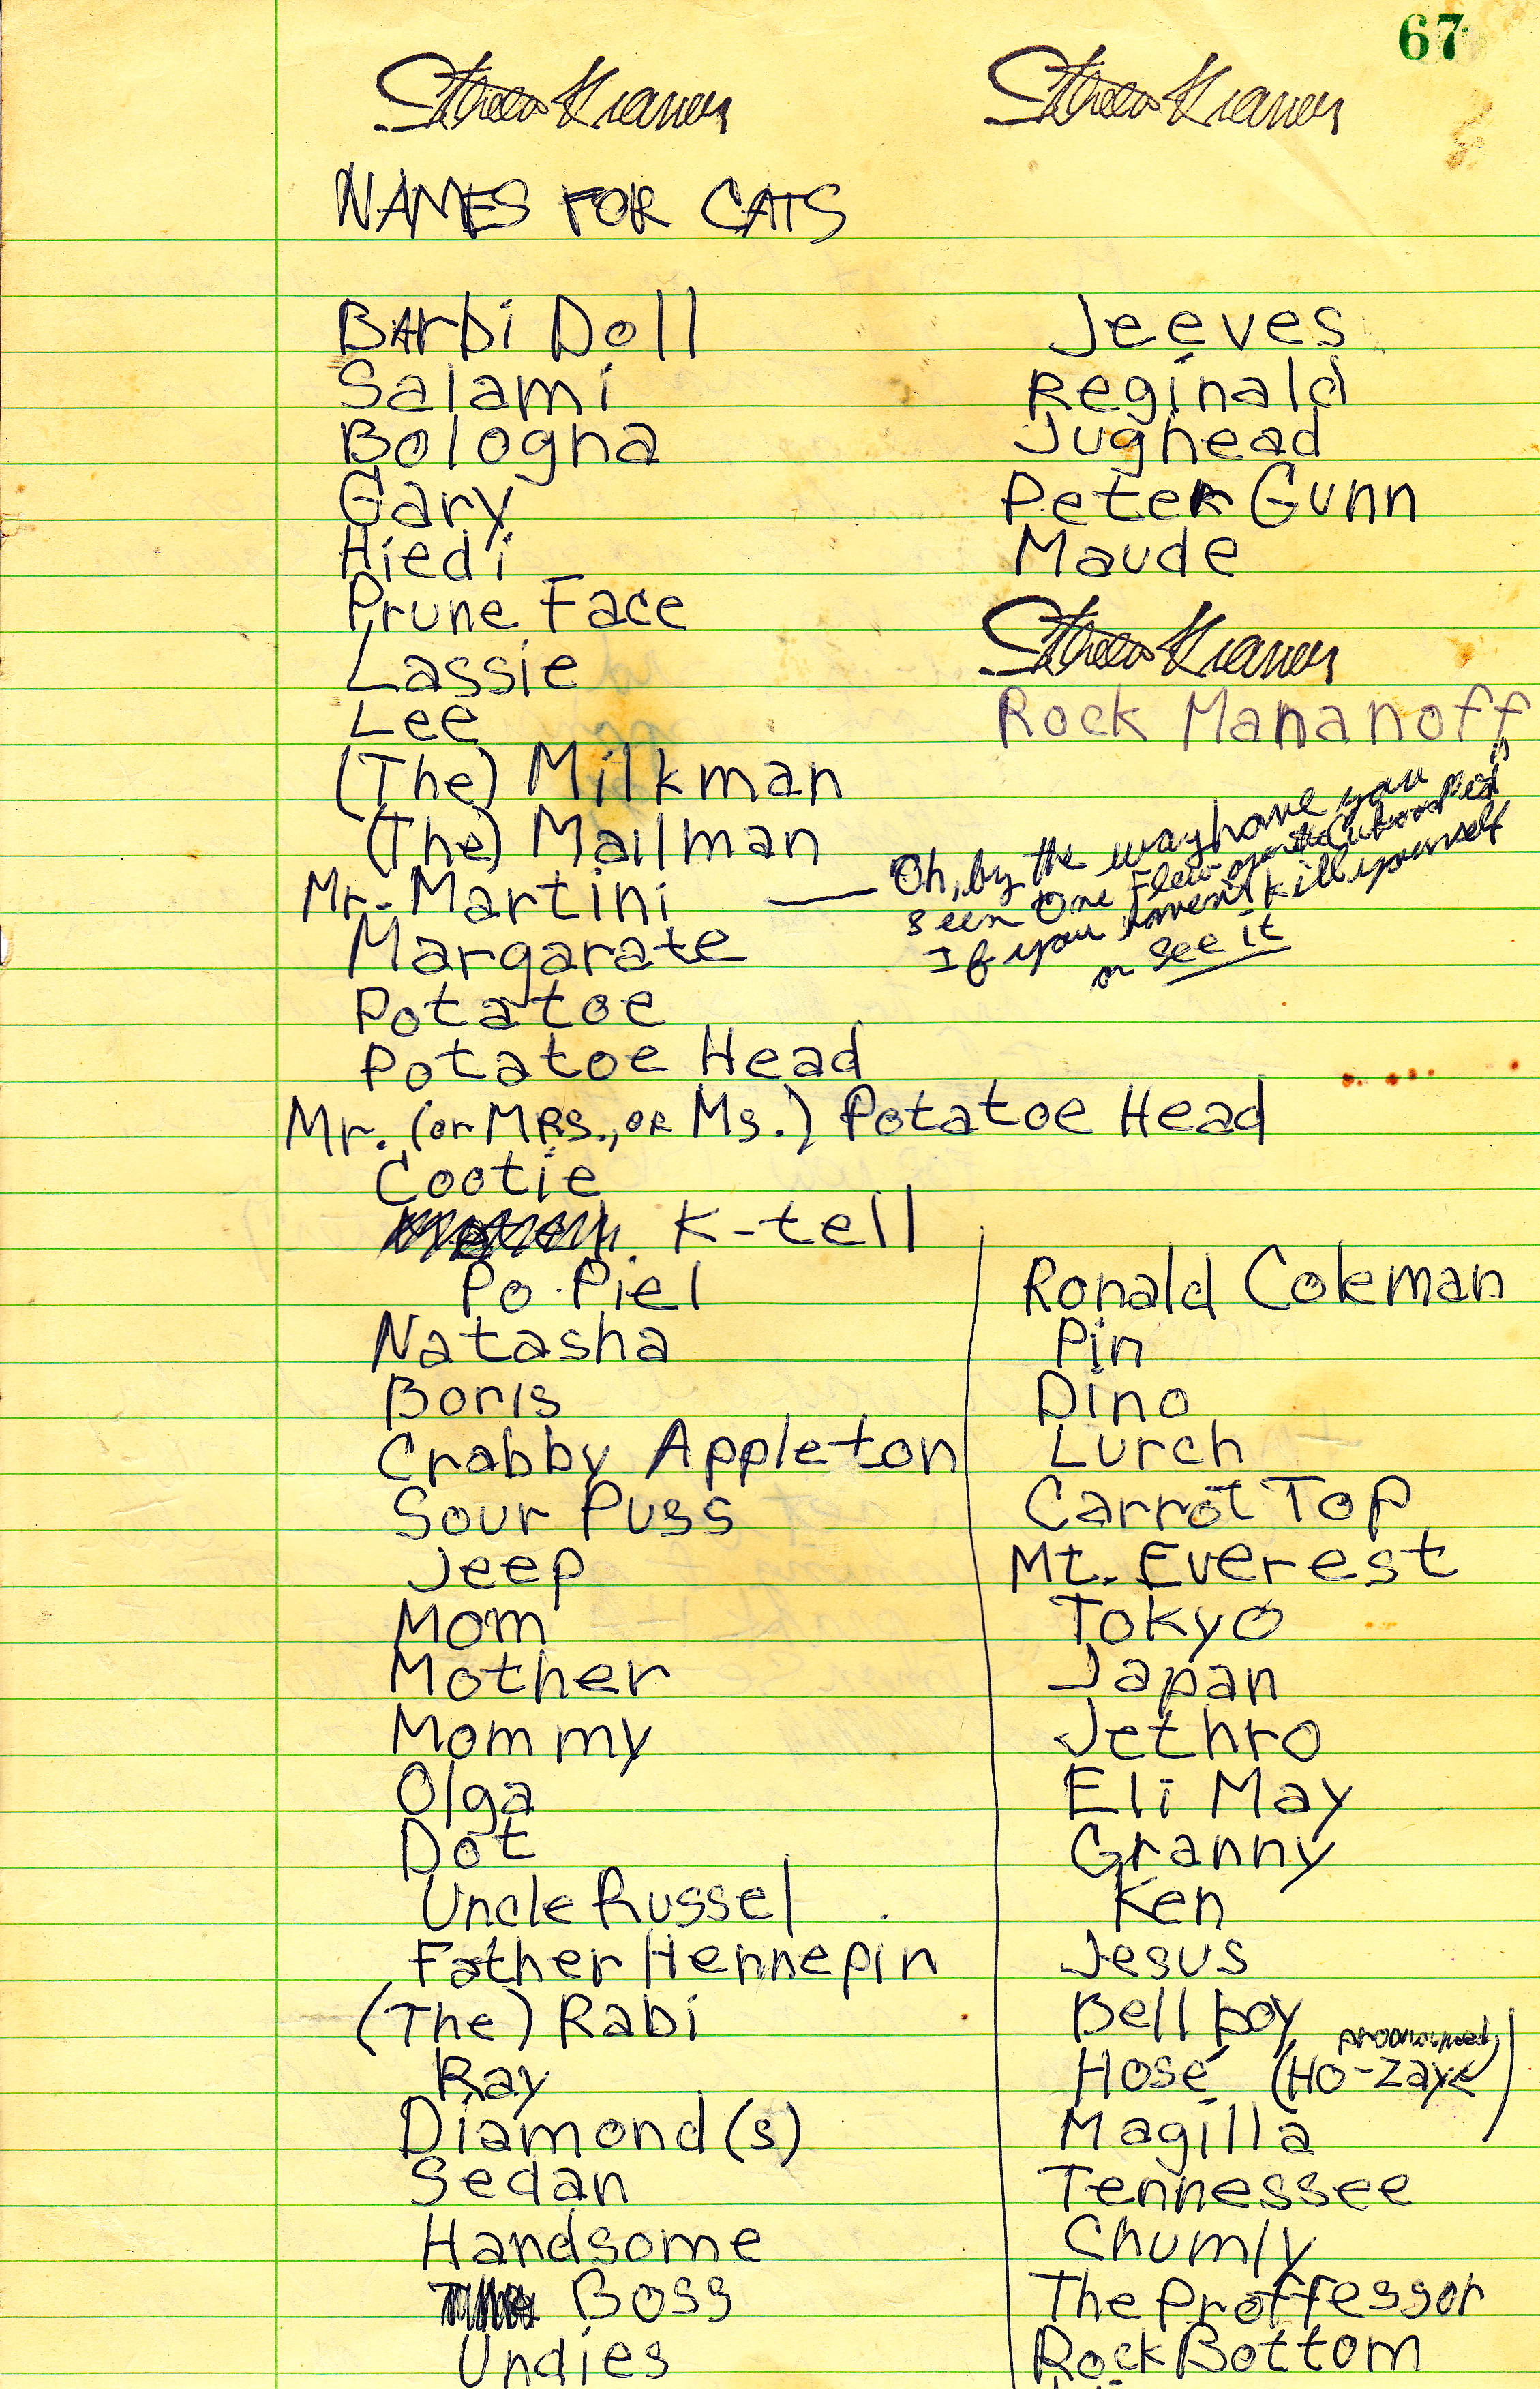 67
NAMES FOR CATS
Barbi Doll
Salami
Bologna
Gary
Hiedi
Prune Face
Lassie
Lee
(The) Milkman
(The) Mailman
Mr. Martini
Margarate
Potatoe
Potatoe Head
Mr. (or MRS., OR Ms.) Potatoe Head
Cootie
K-tell
Po Piel
Natasha
Boris
Crabby Appleton
Sour Puss
Jeep
Mom
Mother
Mommy
Olga
Dot
Uncle Russel
Father Hennepin
(The) Rabi
Ray
Diamond(s)
Sedan
Handsome
Boss
Undies
Jeeves
Reginald
Jughead
Peter Gunn
Maude
Rock Mananoff
Oh, by the way have you
seen One Flew over the Cukoos Nest
If you haven't kill yourself
or see it
Ronald Coleman
Pin
Dino
Lurch
Carrot Top
Mt. Everest
Tokyo
Japan
Jethro
Eli May
Granny
Ken
Jesus
Bell boy
pronounced
Hosé (HO-Zaye)
Magilla
Tennessee
Chumly
The Proffessor
Rock Bottom